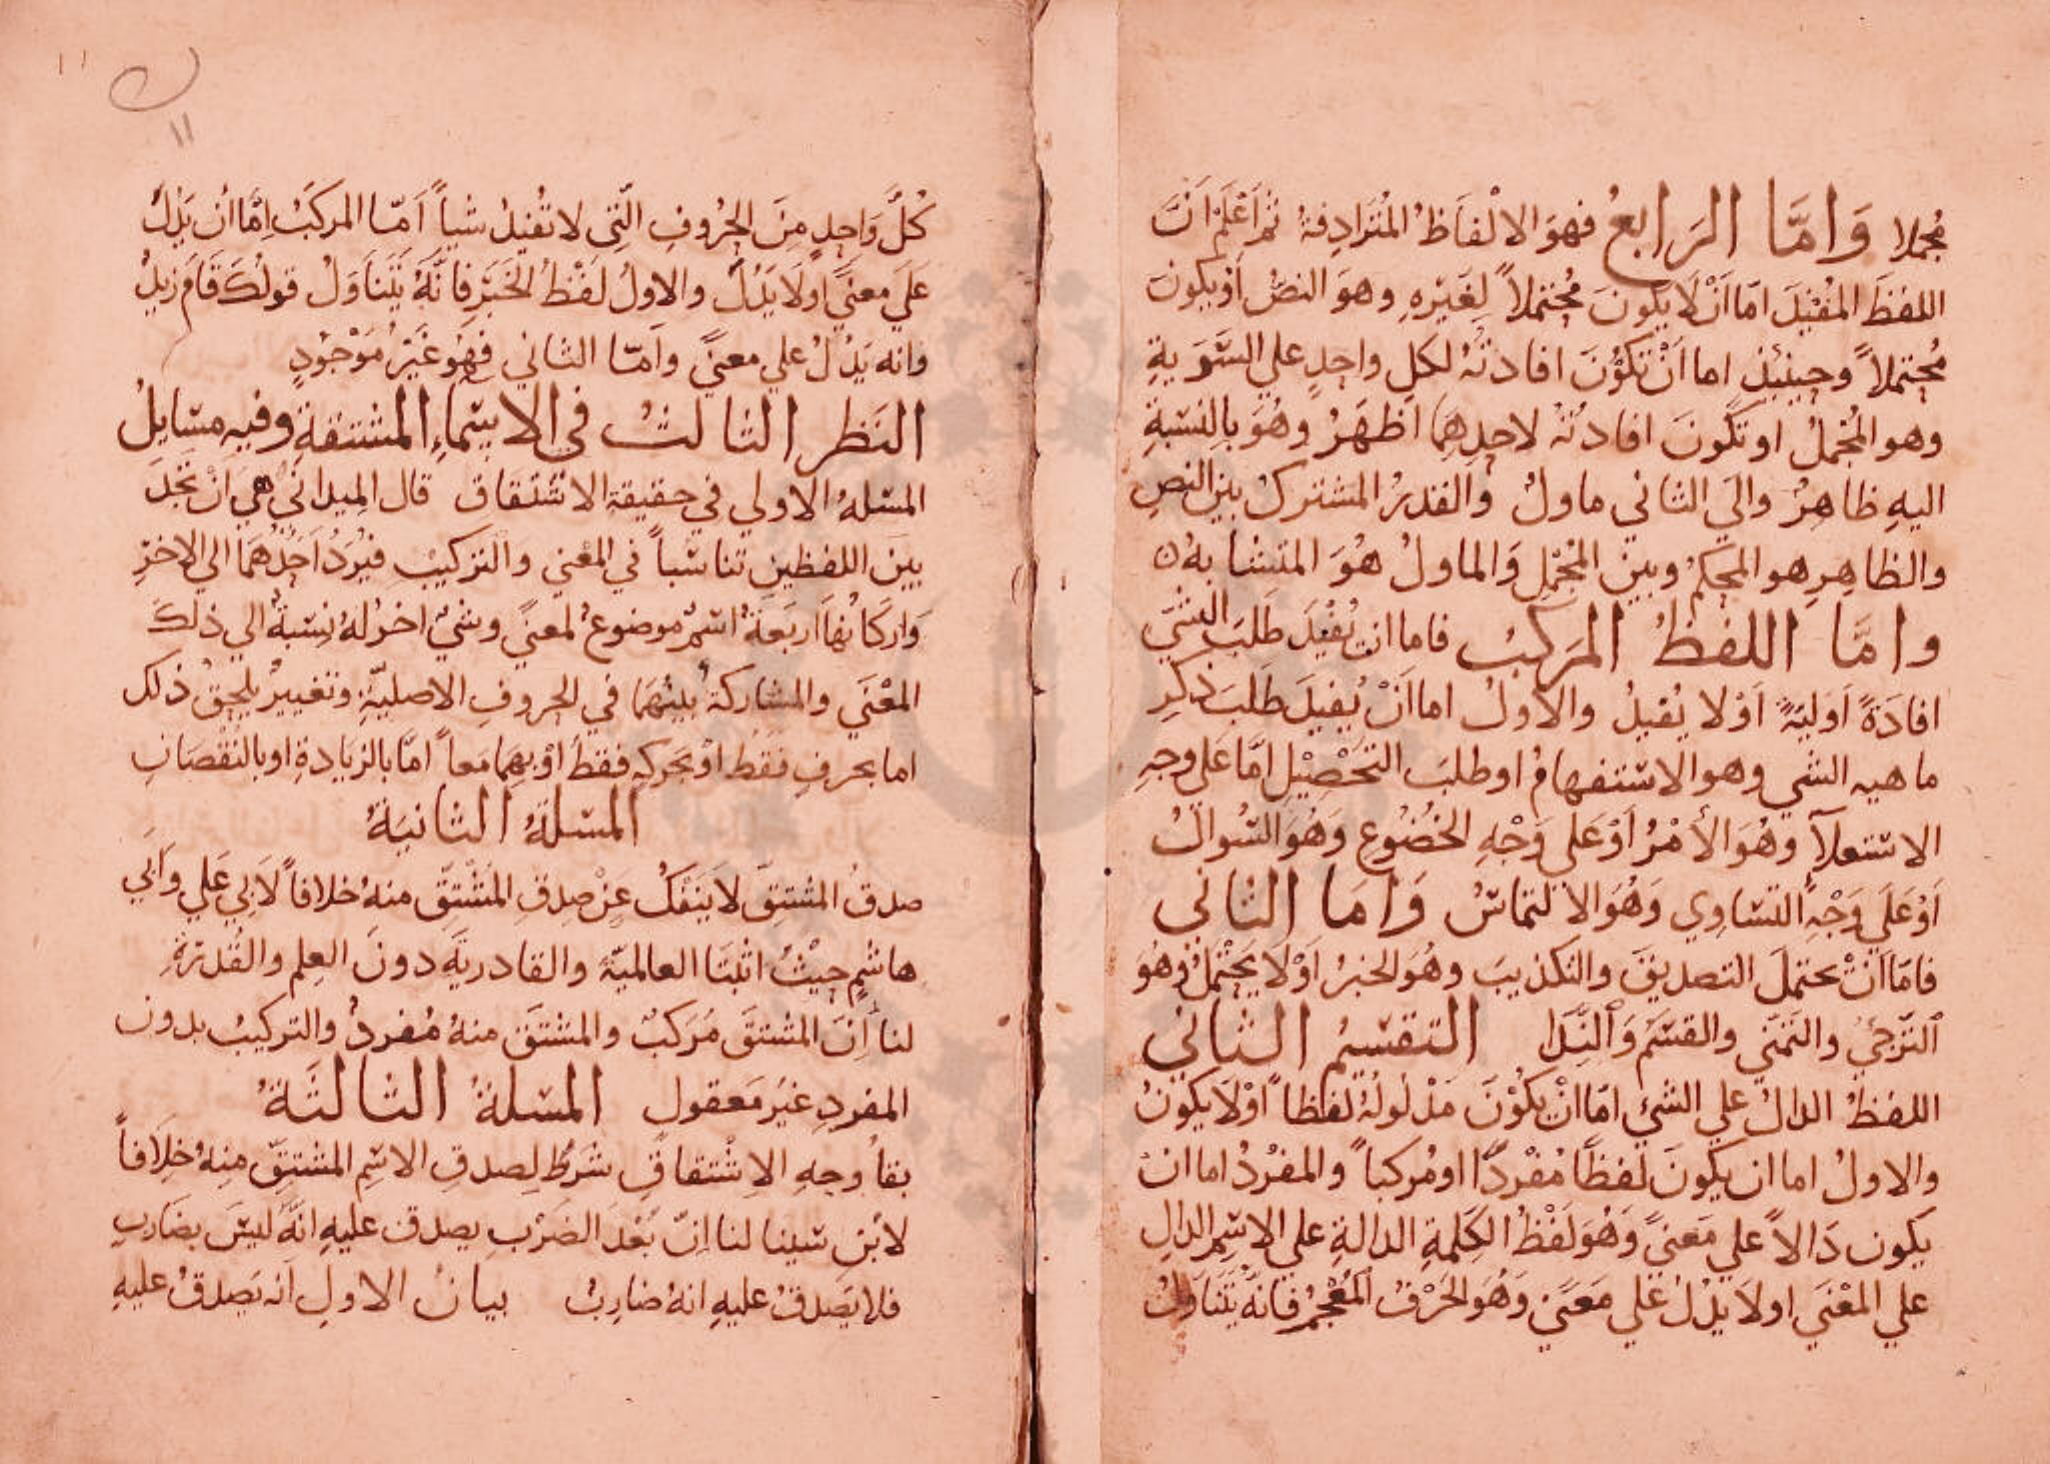 مُجملا وَامَّا الرَابعُ فهوَ الالْفاظُ المُتَرَادِفةُ ثمَّ اعْلَمْ انَّ
اللفظَ المُفيْدَ امّا اَنْ لَا يكونَ مُحتملاً لِغَيْرِهِ وهوَ النصُّ اَوْ يكونَ
مُحتملاً وحينئذٍ اما اَنْ تكوْنَ افادتُهُ لكلِ واحدٍ علي السَّوَيةِ
وهو المُجْملُ او تكُونَ افادتُهُ لاحدِهِمَا اظهَرُ وهُوَ بالنسْبةِ
اليهِ ظاهِرٌ واليَ الثاني ماولٌ والقدرُ المشتركُ بين النصِ
والظاهِرِ هو المحكمُ وبينَ المُجْمَلِ وَالماولُ هُوَ المتشابهُ
وامَّا اللفظُ المرَكبُ فاما ان يُفيْدَ طلبَ الشيَ
افادَةً اَوَّليَّةً اَوْ لا يُفيدُ والاولُ اما اَنْ يُفيدَ طَلبَ ذكرِ
ماهيه الشي وهو الاستفهامُ او طلبَ التحْصِيْلِ امَّا عَلى وجهِ
الاستعلآءِ وهُوَ الأمْرُ اَوْ عَلى وَجْهِ الخُضُوعِ وَهُوَ السُوالُ
اَوْ عَلَى وَجْهِ التسَاوِي وَهُوَ الالتماسُ وَامَا الثاني
فامّا اَنْ يحتملَ التصديقَ والتكذيبَ وهُوَ الخبرُ اَوْ لَا يَحتْملُ وهُوَ
الترَّجيُّ والتمَني والقسَمُ وَالنِدَا التقسيْم الثاني
اللفظُ الدالُ علي الشيْ امّا انْ يكُوْنَ مَدْلُولُهُ لفظاً اَوْ لَا يكونُ
والاولُ اما ان يكونَ لَفظاً مُفْردًا او مُركباً والمفرُدُ اما ان
يكون دَالاً علي مَعنيً وَهُوَ لَفْظُ الكَلِمةِ الدالةِ علي الاسِمِ الدالِ
علي المعْنَي اولَا يدُلُ عَلي مَعَنيً وَهُوَ الحَرْفُ المُعْجمُ فانَّهُ يَتَنَاوَلُ
كُلَّ وَاحدٍ مِنَ الحُرُوفِ الَّتِي لا تُفيدُ شياً اَمّا المركبُ اِمَّا ان يَدُلَ
عَلَى معنيً اولَا يَدُلُّ والاولُ لَفْظُ الخبَرِ فانَّهُ يَتَنَاوَلُ قولُكَ قَامَ زيدٌ
وانه يَدُلُ علي معنيً وامّا الثاني فهُوَ غَيْرُ مَوْجُودٍ
النَظر الثالثُ في الاسْمَاءِ المشتقة وفيهِ مسَايلُ
المسَلهُ الاولي في حقيقةِ الاشتقاق قال الميداني هي اَنْ تَجدَ
بينَ اللفظينِ تناسباً في المعْنَي والتركيبِ فيُرَدُّ اَحَدُهُمَا الي الاخرِ
وَاركَانهُا اَربَعَةٌ اسْمٌ موضوعٌ لمعنيً وشيٌ اخرُ لهُ نِسْبةٌ الي ذلكَ
المعْنَي والمشاركةُ بينهمَا في الحروفِ الاصليّةِ وتغييرٌ يلحقُ ذلك
اما بحرفٍ فقط اَوْ بحَركهٍ فقطْ اَوْ بهمَا مَعاً امَّا بالزيَادةِ او بالنقْصَانِ
المسَلةُ الثانيَةُ
صدقُ المشتقِ لا يَنفكُ عَنْ صِدقِ المُشْتقِ منهُ خلافاً لَابي عَلي وَابي
هاشمٍ حيْثُ اثبتَا العالميَّةَ والقادريَّةَ دونَ العِلم والقُدرَةِ
لنا اِنَّ المشتقَ مُرَكبٌ والمشتقَ منهُ مُفردٌ والتركيبُ بدون
المفردِ غيرُ مَعقول المسَلةُ الثالثَةُ
بقاُ وجهِ الاشْتقاقِ شَرطٌ لِصدقِ الاسْمِ المشتقِّ مِنهُ خلَافاً
لابْن سينا لنا انّ بَعْدَ الضَرْبِ يصدق عليهِ انَّهُ ليسَ بضَاربٍ
فلا يَصدقُ عليهِ انهُ ضاربٌ بيانُ الاولِ انه يَصدقُ عليهِ
١١
١١